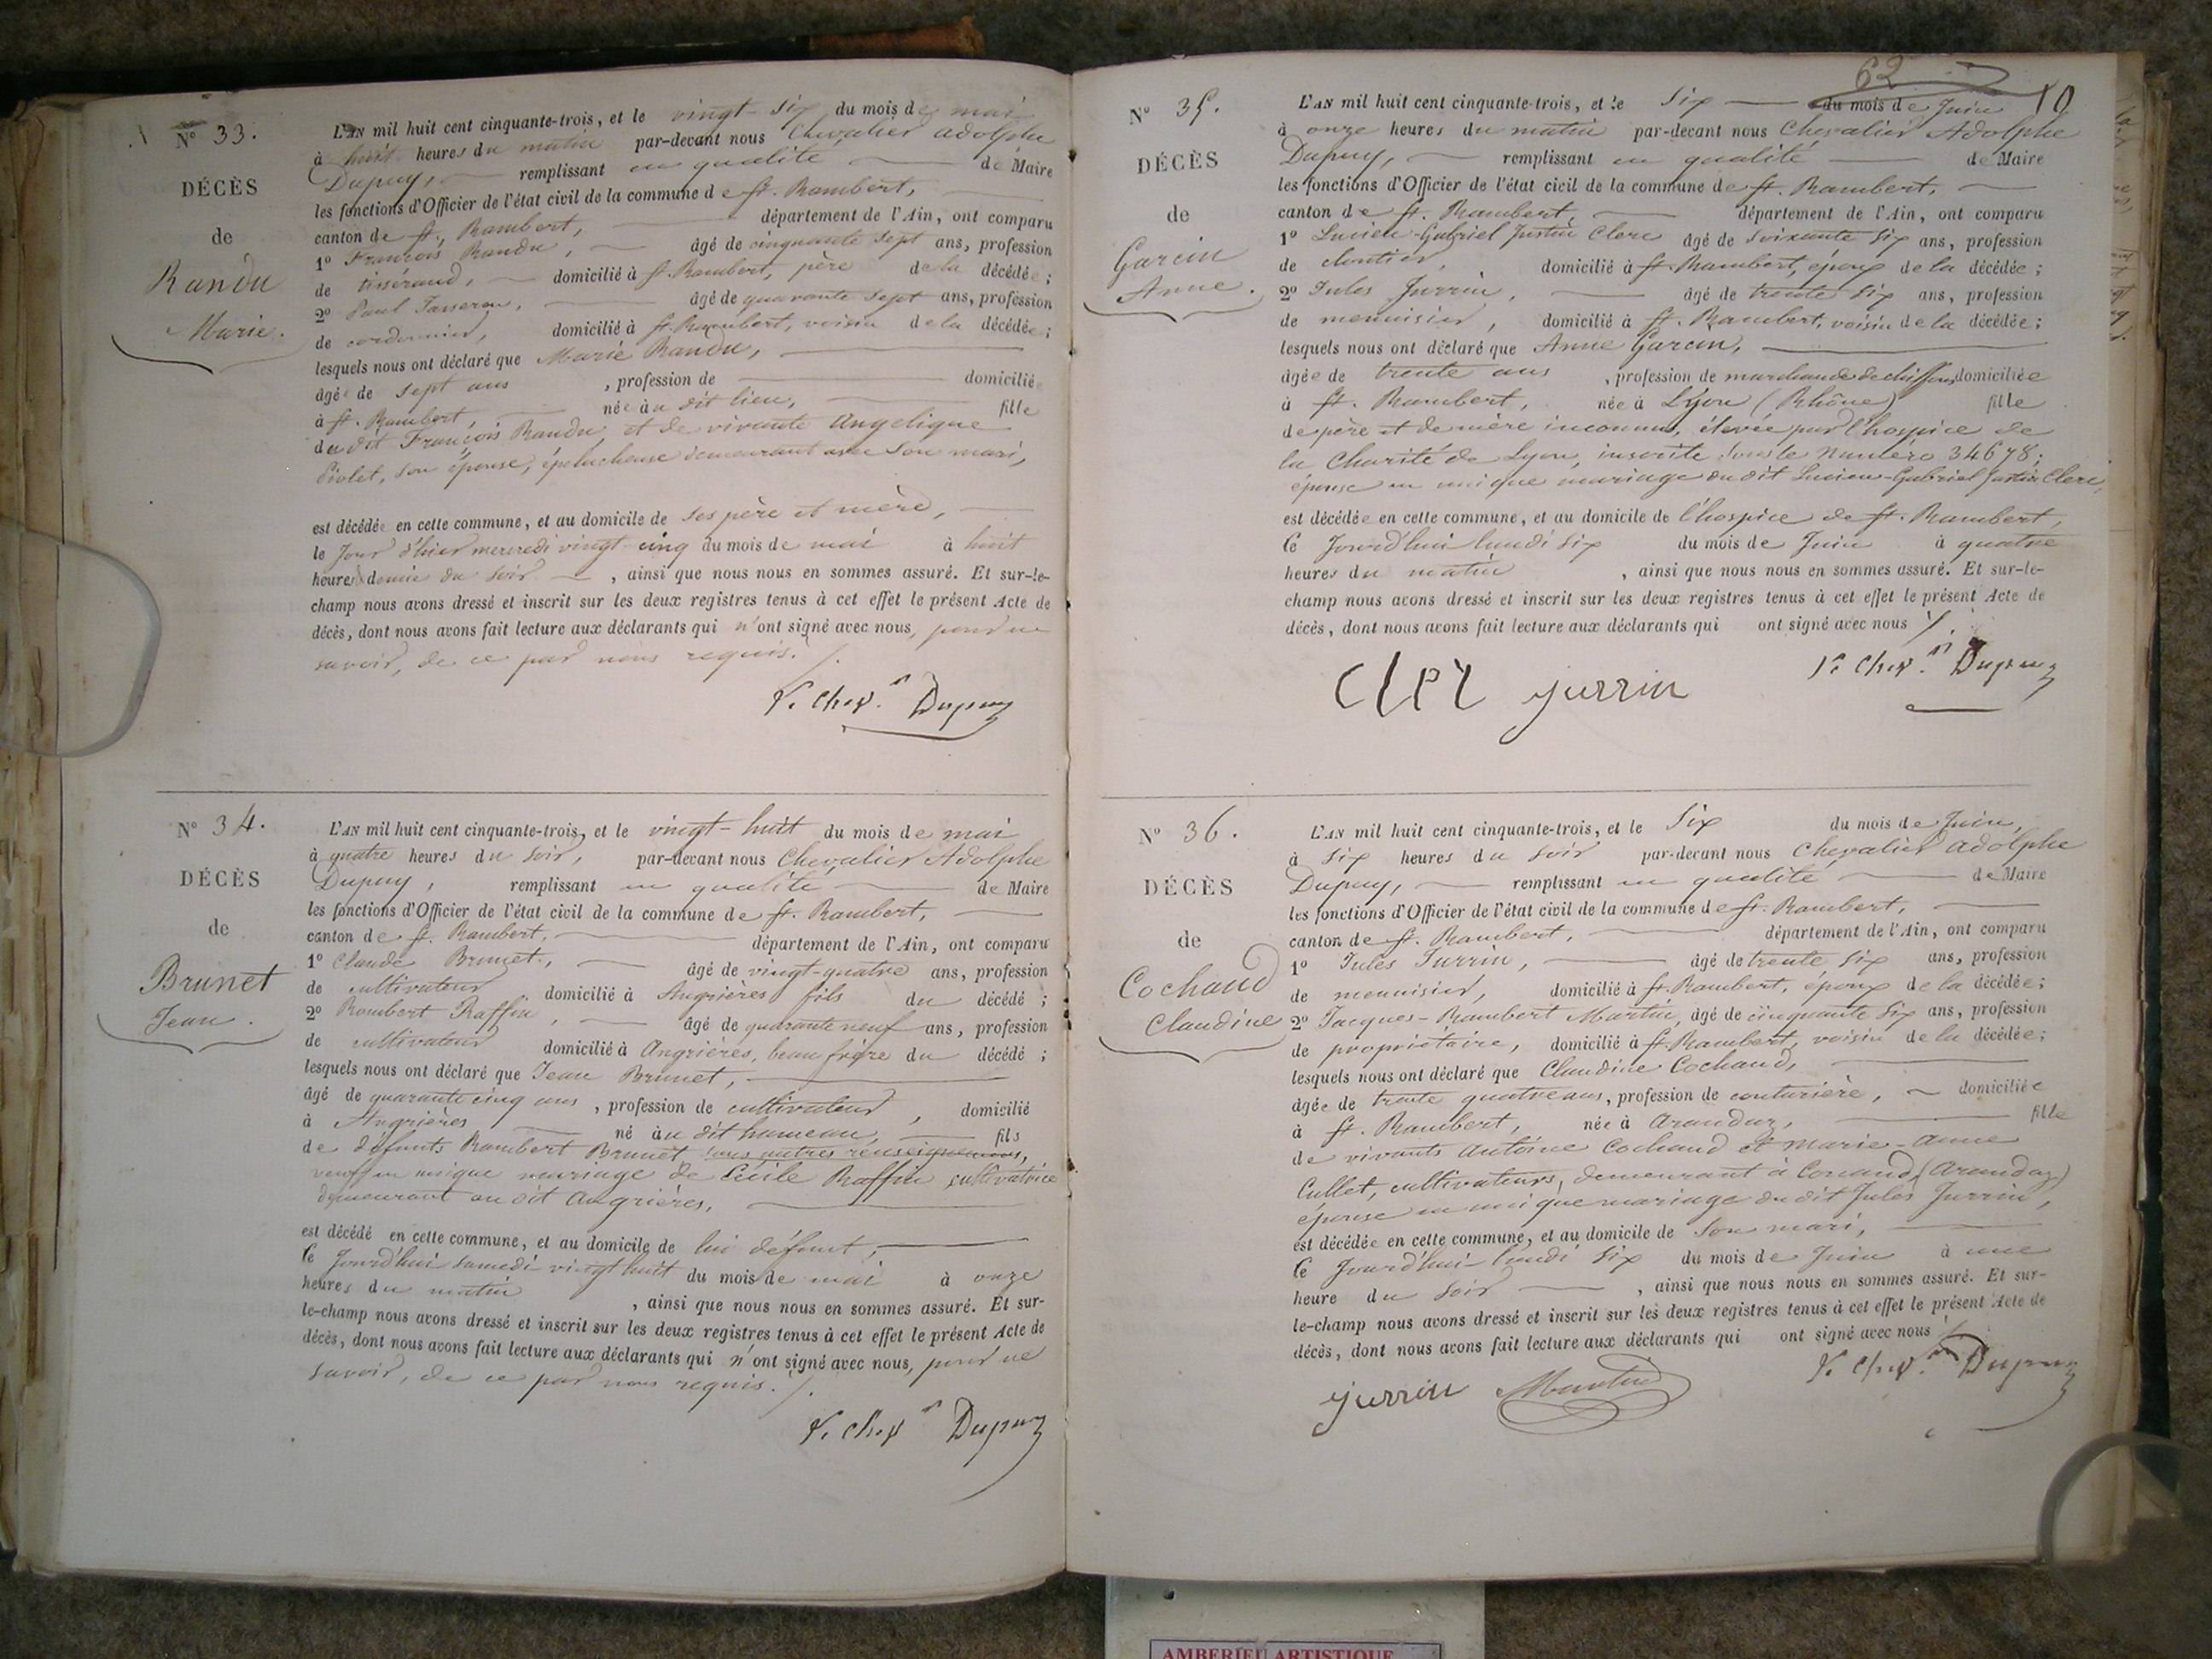 N° 33.
DÉCÈS
de
Randu
Marie.
L'AN mil huit cent cinquante-trois, et le vingt-six du mois de mai
à huit heures du matin par-devant nous Chevalier Adolphe
Dupuy, remplissant en qualité de Maire
les fonctions d'Officier de l'état civil de la commune de St. Rambert,
canton de St. Rambert, département de l'Ain, ont comparu
1° François Randu, âgé de cinquante sept ans, profession
de tisserand, domicilié à St. Rambert, père de la décédée;
2° Paul Tasseran, âgé de quarante sept ans, profession
de cordonnier, domicilié à St. Rambert, voisin de la décédée;
lesquels nous ont déclaré que Marie Randu,
âgée de sept ans, profession de domiciliée
à St. Rambert, née au dit lieu, fille
du dit François Randu, et de vivante Angelique
Piolet, son épouse, éplucheuse demeurant avec son mari,
est décédée en cette commune, et au domicile de ses père et mère,
le Jour d'hier mercredi vingt-cinq du mois de mai à huit
heures & demie du soir, ainsi que nous nous en sommes assuré. Et sur-le-
champ nous avons dressé et inscrit sur les deux registres tenus à cet effet le présent Acte de
décès, dont nous avons fait lecture aux déclarants qui n'ont signé avec nous, pour ne
savoir, de ce par nous requis. /.
Dupuy
N° 34.
DÉCÈS
de
Brunet
Jean.
L'AN mil huit cent cinquante-trois, et le vingt-huit du mois de mai
à quatre heures du soir, par-devant nous Chevalier Adolphe
Dupuy, remplissant en qualité de Maire
les fonctions d'Officier de l'état civil de la commune de St. Rambert,
canton de St. Rambert, département de l'Ain, ont comparu
1° Claude Brunet, âgé de vingt-quatre ans, profession
de cultivateur domicilié à Angrières fils du décédé;
2° Rambert Raffin, âgé de quarante neuf ans, profession
de cultivateur domicilié à Angrières, beau frère du décédé;
lesquels nous ont déclaré que Jean Brunet,
âgé de quarante cinq ans, profession de cultivateur, domicilié
à Angrières né au dit hameau, fils
de défunts Rambert Brunet sans autres renseignemens,
veuf en unique mariage de Cécile Raffin cultivatrice
demeurant au dit Angrières,
est décédé en cette commune, et au domicile de lui défunt,
le Jourd'hui samedi vingt huit du mois de mai à onze
heures du matin, ainsi que nous nous en sommes assuré. Et sur-
le-champ nous avons dressé et inscrit sur les deux registres tenus à cet effet le présent Acte de
décès, dont nous avons fait lecture aux déclarants qui n'ont signé avec nous, pour ne
savoir, de ce par nous requis. /.
Dupuy
62
10
N° 35.
DÉCÈS
de
Garcin
Anne.
L'AN mil huit cent cinquante-trois, et le six du mois de Juin
à onze heures du matin par-devant nous Chevalier Adolphe
Dupuy, remplissant en qualité de Maire
les fonctions d'Officier de l'état civil de la commune de St. Rambert,
canton de St. Rambert, département de l'Ain, ont comparu
1° Lucien-Gabriel Justin Clerc âgé de soixante six ans, profession
de cloutier, domicilié à St. Rambert, époux de la décédée;
2° Jules Jurrin, âgé de trente six ans, profession
de menuisier, domicilié à St. Rambert, voisin de la décédée;
lesquels nous ont déclaré que Anne Garcin,
âgée de trente ans, profession de marchande de chiffons, domiciliée
à St. Rambert, née à Lyon (Rhône) fille
de père et de mère inconnus, élevée par l'hospice de
la Charité de Lyon, inscrite sous le numéro 34678;
épouse en unique mariage du dit Lucien-Gabriel Justin Clerc,
est décédée en cette commune, et au domicile de l'hospice de St. Rambert,
le Jourd'hui lundi six du mois de Juin à quatre
heures du matin, ainsi que nous nous en sommes assuré. Et sur-le-
champ nous avons dressé et inscrit sur les deux registres tenus à cet effet le présent Acte de
décès, dont nous avons fait lecture aux déclarants qui ont signé avec nous /.
Dupuy
Clerc jurrin
N° 36.
DÉCÈS
de
Cochaud
Claudine
L'AN mil huit cent cinquante-trois, et le six du mois de Juin,
à six heures du soir par-devant nous Chevalier Adolphe
Dupuy, remplissant en qualité de Maire
les fonctions d'Officier de l'état civil de la commune de St. Rambert,
canton de St. Rambert, département de l'Ain, ont comparu
1° Jules Jurrin, âgé de trente six ans, profession
de menuisier, domicilié à St. Rambert, époux de la décédée;
2° Jacques-Rambert Martin, âgé de cinquante six ans, profession
de propriétaire, domicilié à St. Rambert, voisin de la décédée;
lesquels nous ont déclaré que Claudine Cochaud,
âgée de trente quatre ans, profession de couturière, domiciliée
à St. Rambert, née à Arandaz, fille
de vivants Antoine Cochaud et Marie-Anne
Cullet, cultivateurs, demeurant à Conand, (Arandaz)
épouse en unique mariage du dit Jules Jurrin,
est décédée en cette commune, et au domicile de son mari,
le Jourd'hui lundi six du mois de Juin à une
heure du soir, ainsi que nous nous en sommes assuré. Et sur-
le-champ nous avons dressé et inscrit sur les deux registres tenus à cet effet le présent Acte de
décès, dont nous avons fait lecture aux déclarants qui ont signé avec nous /.
Dupuy
jurrin Martin
AMBERIEU ARTISTIQUE